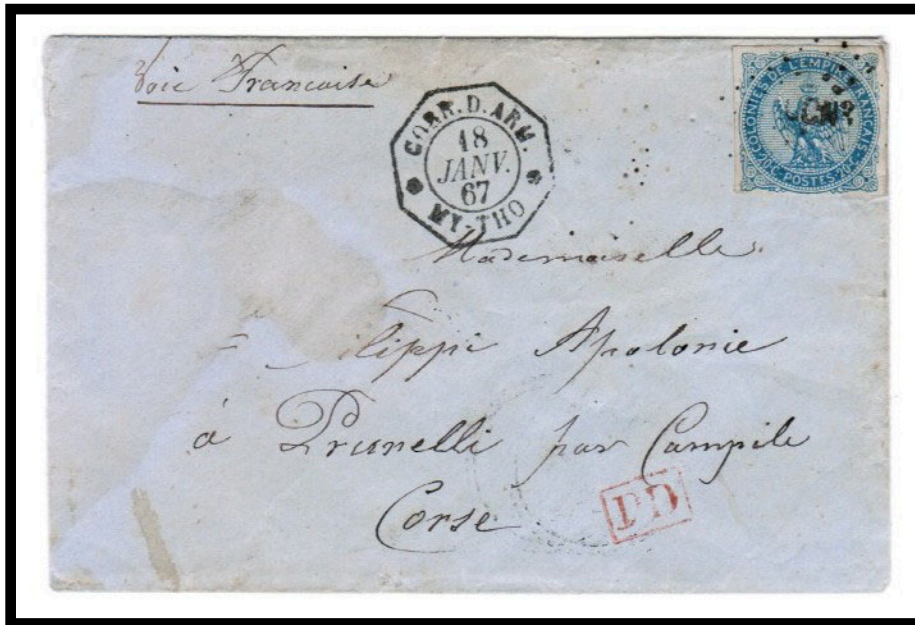 Voie Francaise
CORR. D. ARM.
18
JANV.
67
MY-THO
COLONIES DE L'EMPIRE FRANÇAIS
20C. POSTES. 20C.
Mademoiselle
Filippi Apolonie
à Prunelli par Campile
Corse
P.D.